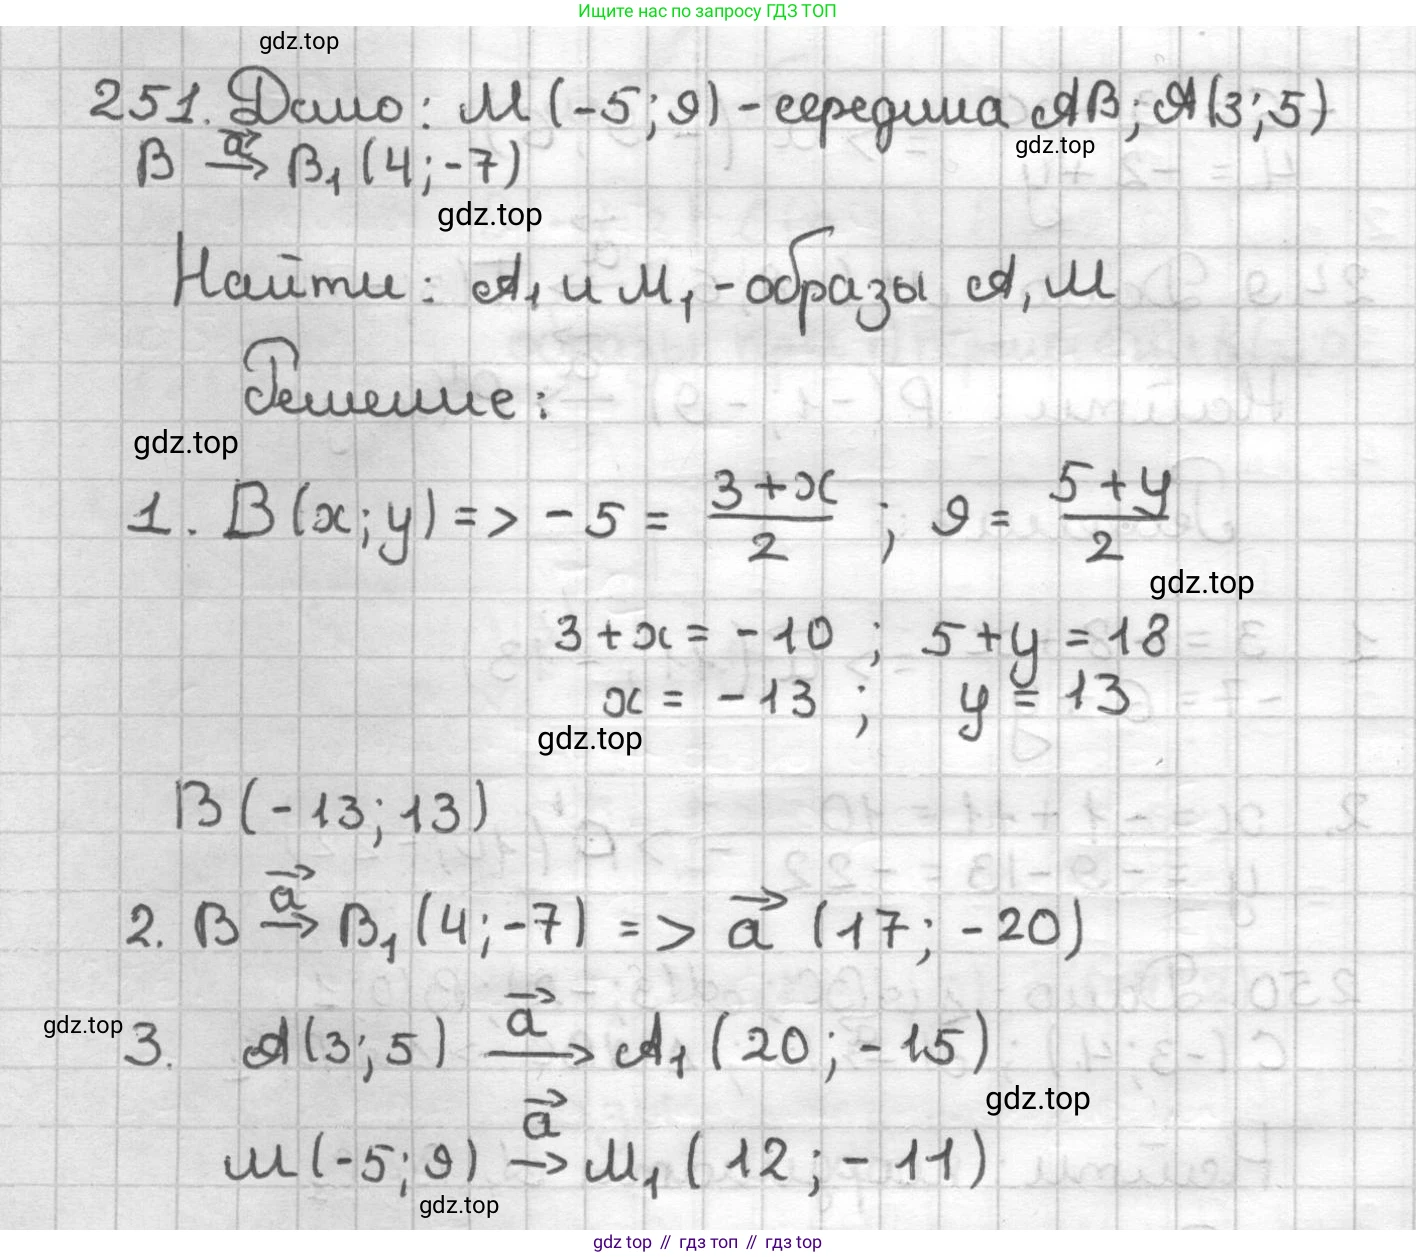 Ищите нас по запросу ГДЗ ТОП
gdz.top
251. Дано: M(-5; 9) - середина AB; A(3; 5)
gdz.top
B →a B₁(4; -7)
gdz.top
Найти: A₁ и M₁ - образы A, M
Решение:
gdz.top
1. B(x; y) => -5 = (3+x)/2 ; 9 = (5+y)/2
gdz.top
3+x = -10 ; 5+y = 18
x = -13 ; y = 13
gdz.top
B(-13; 13)
2. B →a B₁(4; -7) => a⃗ (17; -20)
gdz.top
3. A(3; 5) →a A₁(20; -15)
gdz.top
M(-5; 9) →a M₁(12; -11)
gdz.top
gdz top // гдз топ // gdz top